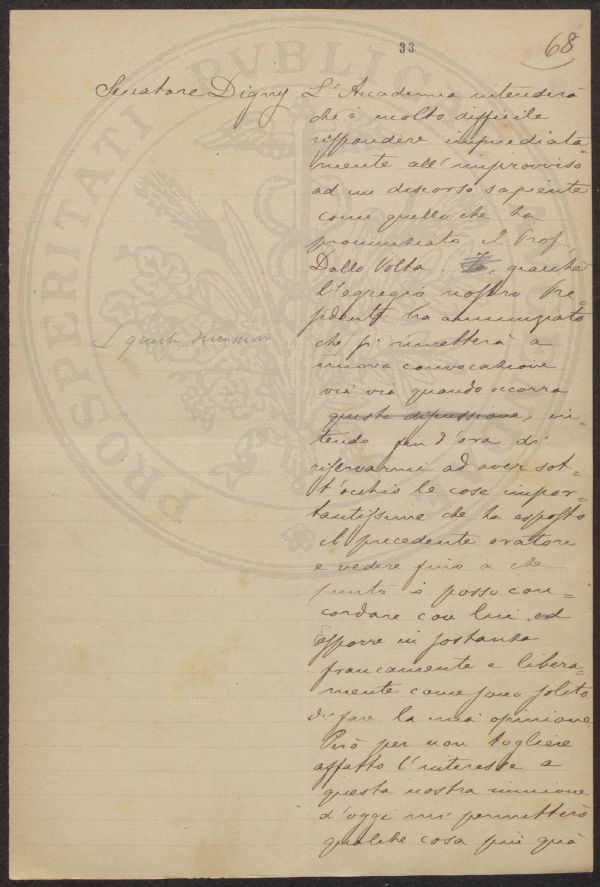 33
68
Senatore Digny L'Accademia intenderà
che è molto difficile
rispondere immediata-
mente all'improvviso
ad un discorso sapiente
come quello che ha
pronunziato il Prof.
Dalla Volta. Io, giacché
l'egregio nostro Pre-
sidente ha annunziato
I questa discussione
che si rimetterà a
nuova convocazione
via via quando occorra
questa discussione, in-
tendo fin d'ora di
riservarmi ad aver sot-
t'occhio le cose impor-
tantissime che ha esposto
il precedente oratore
e vedere fino a che
punto io posso con=
cordare con lui ed
esporre in sostanza
francamente e libera-
mente come sono solito
di fare la mia opinione.
Però per non togliere
affatto l'interesse a
questa nostra riunione
d'oggi mi permetterò
qualche cosa fin quà
PROSPERITATI PVBLICAE